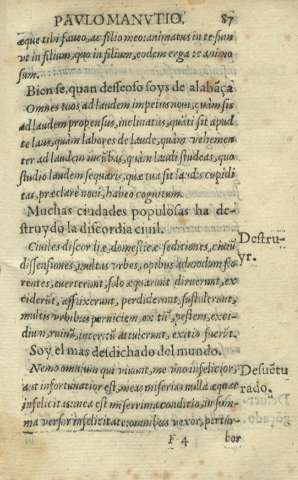 PAVLO MANVTIO. 87
æque tibi faueo, ac filio meo: animatus in te sum
vt in filium, quo in filium, eodem erga te animo
sum.
Bien se, quan desseoso soys de alabāça
Omnes tuos ad laudem impetus noui, quàm sis
ad laudem propensus, inclinatus, quāti sit apud
te laus, quàm labores de laude, quàm vehemen
ter ad laudem incūbas, quàm laudi studeas, quo
studio laudem sequaris, quæ tua sit laudis cupidi
tas, præclarè noui, habeo cognitum.
Muchas ciudades populosas ha de-
struydo la discordia ciuil.
Destru-
yr.
Ciuiles discordiæ, domesticæ seditiones, ciuiū
dissensiones, multas vrbes, opibus admodum flo
rentes, euerterunt, solo æquarunt diruerunt, ex
ciderūt, afflixerunt, perdiderunt, sustulerunt,
multis vrbibus perniciem, exitiū, pestem, exci-
dium, ruinā, interitū attulerunt, exitio fuerūt.
Soy el mas desdichado del mundo.
Desuētu
rado.
Nemo omnium qui viuunt, me vno infelicior,
aut infortunatior est, mea miseria nulla æquat
infelicitas: mea est miserrima conditio, in sum-
ma versor infelicitate: omnibus vexor, pertur-
F 4 bor